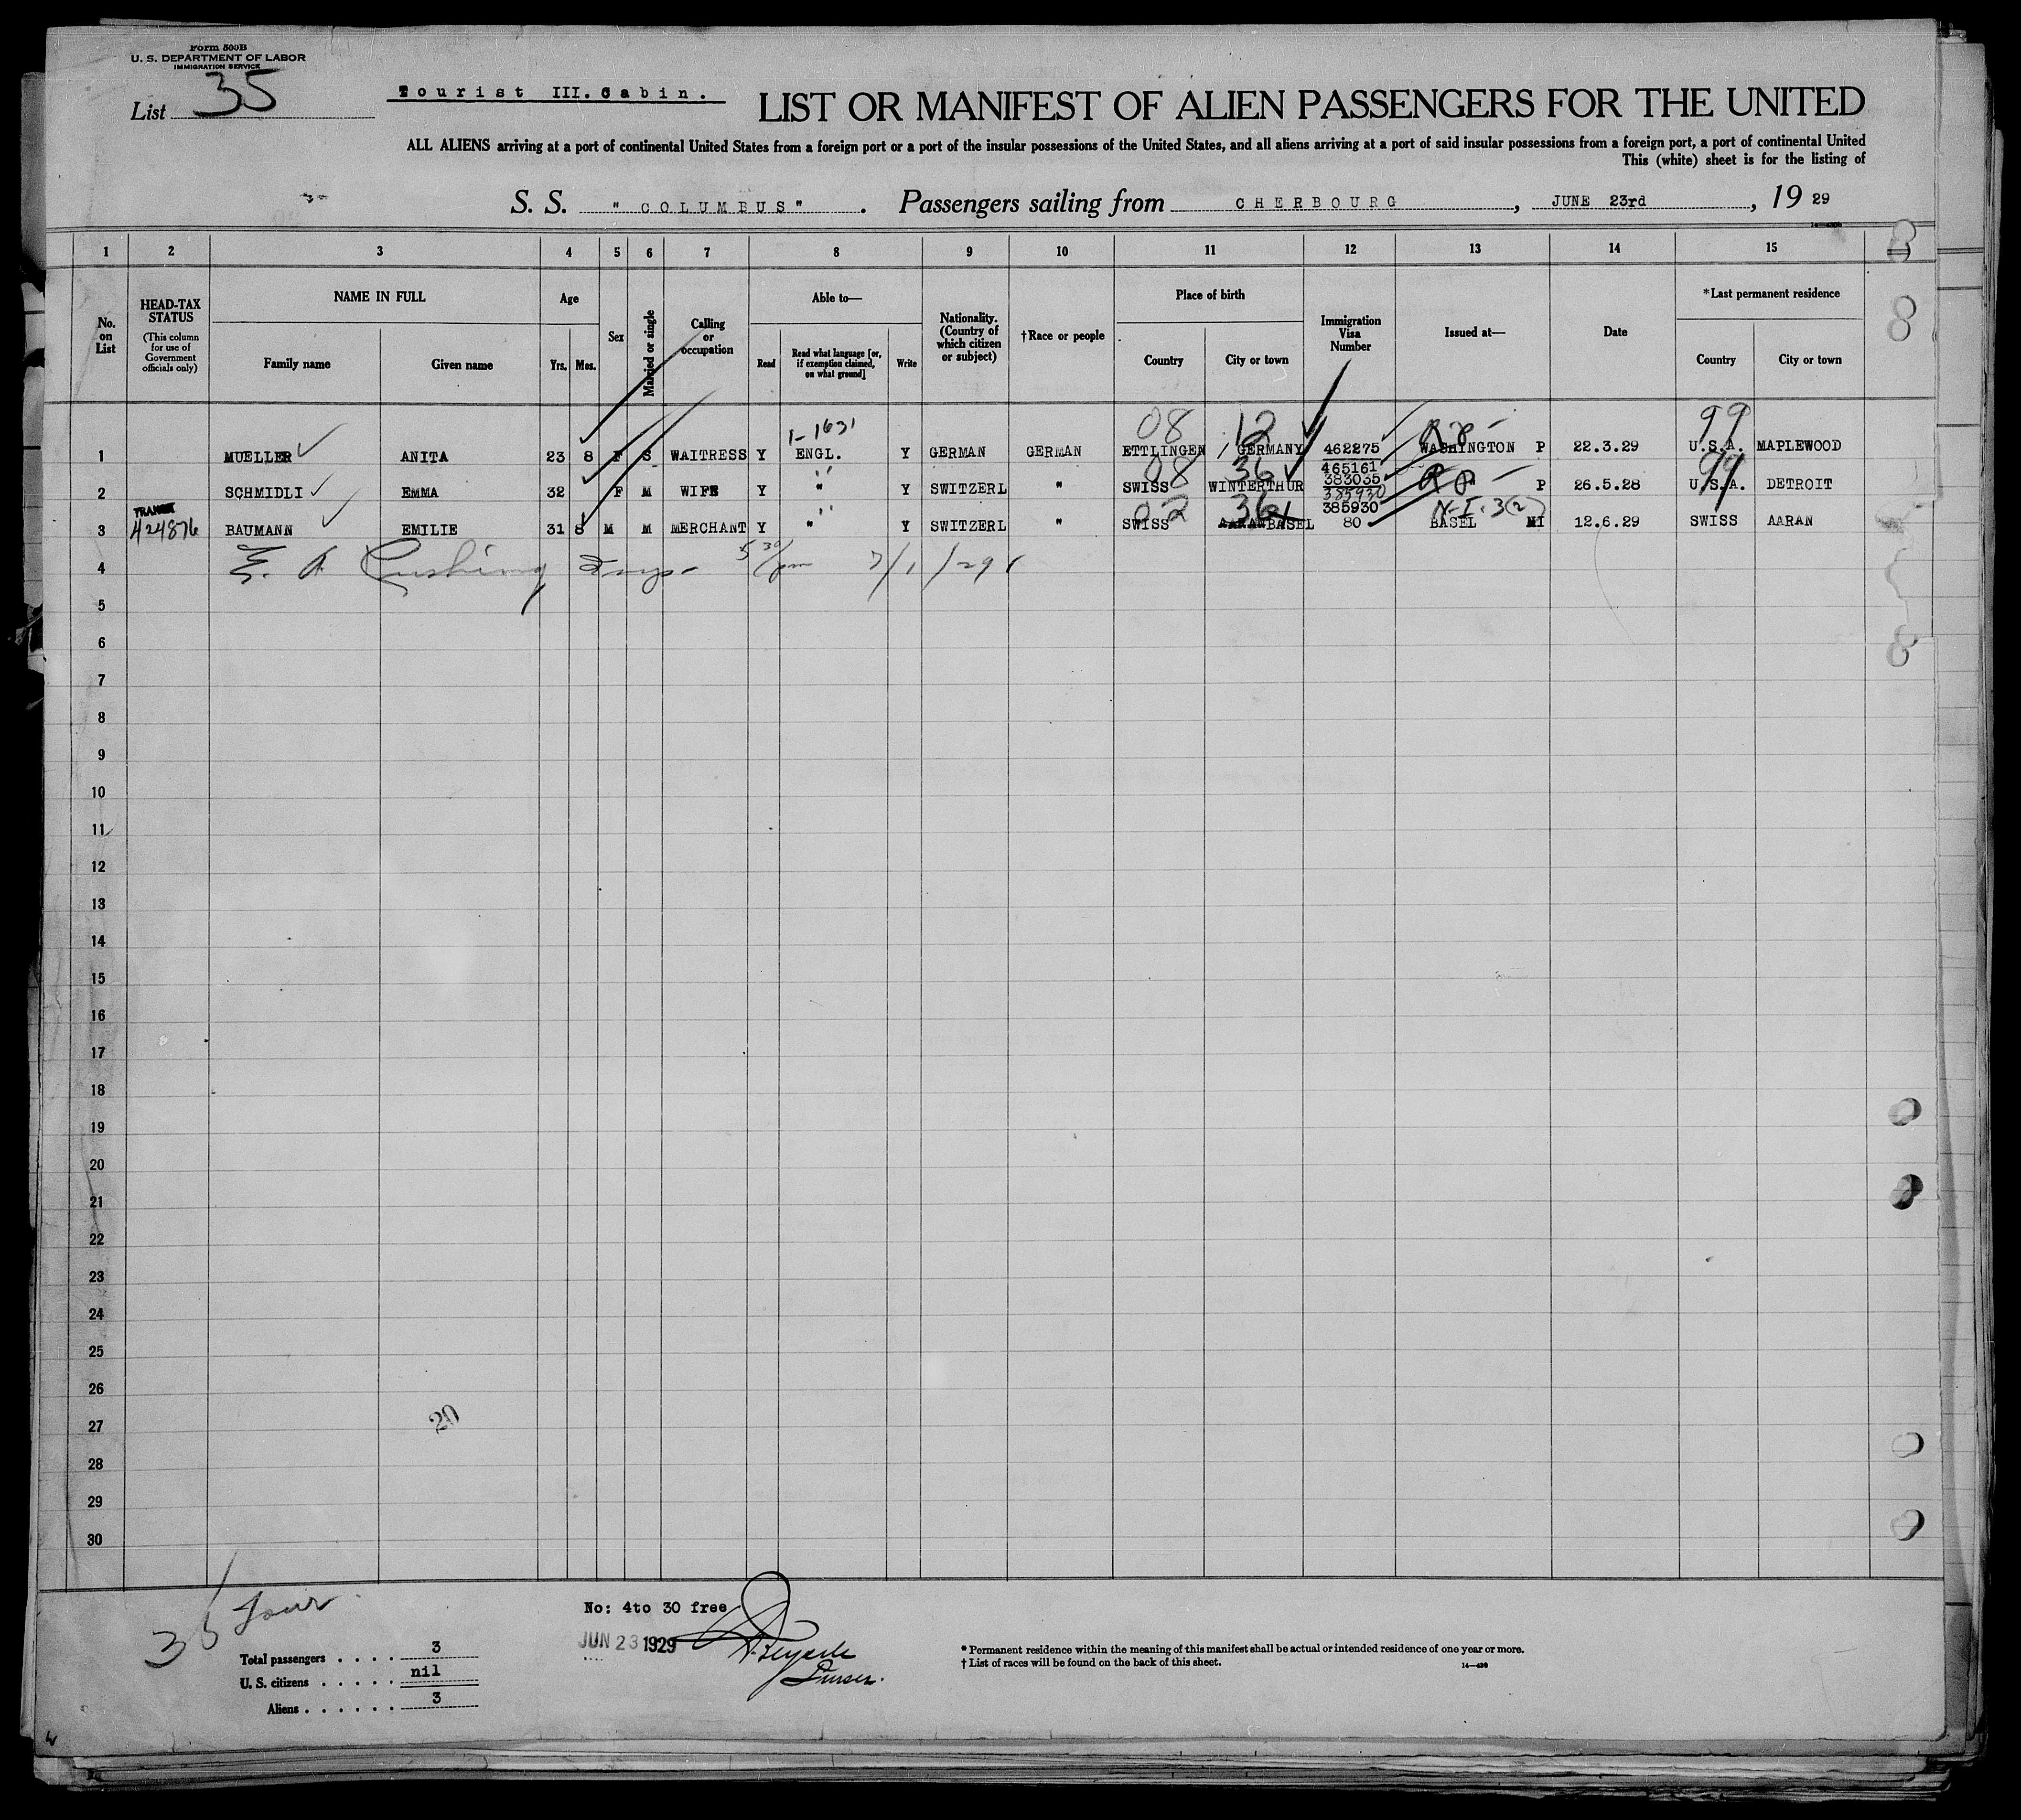 Form 500B
U. S. DEPARTMENT OF LABOR
IMMIGRATION SERVICE
List 35
Tourist III. Cabin.
LIST OR MANIFEST OF ALIEN PASSENGERS FOR THE UNITED
ALL ALIENS arriving at a port of continental United States from a foreign port or a port of the insular possessions of the United States, and all aliens arriving at a port of said insular possessions from a foreign port, a port of continental United
This (white) sheet is for the listing of
S. S. "COLUMBUS". Passengers sailing from CHERBOURG, JUNE 23rd, 19 29
1 2 3 4 5 6 7 8 9 10 11 12 13 14 15
No. on List
HEAD-TAX STATUS
(This column for use of Government officials only)
NAME IN FULL
Family name Given name
Age
Yrs. Mos.
Sex
Married or single
Calling or occupation
Able to—
Read
Read what language [or, if exemption claimed, on what ground]
Write
Nationality. (Country of which citizen or subject)
†Race or people
Place of birth
Country City or town
Immigration Visa Number
Issued at—
Date
*Last permanent residence
Country City or town
08 12 99
1-1631
1 MUELLER ANITA 23 8 F S WAITRESS Y ENGL. Y GERMAN GERMAN ETTLINGEN / GERMANY 462275 WASHINGTON P 22.3.29 U.S.A. MAPLEWOOD
465161
08 36 383035 99
2 SCHMIDLI EMMA 32 F M WIFE Y " Y SWITZERL " SWISS WINTERTHUR 385930 P 26.5.28 U.S.A. DETROIT
TRANSIT 02 36 385930 N-I-3(2)
3 424876 BAUMANN EMILIE 31 8 M M MERCHANT Y " Y SWITZERL " SWISS AARAN BASEL 80 BASEL NI 12.6.29 SWISS AARAN
4 E. A. Cushing Insp- 5 30/pm 7/1/29
5
6
7
8
9
10
11
12
13
14
15
16
17
18
19
20
21
22
23
24
25
26
27
20
28
29
30
No: 4to 30 free
JUN 23 1929
Purser.
Total passengers . . . . 3
U. S. citizens . . . . . nil
Aliens . . . . . . 3
* Permanent residence within the meaning of this manifest shall be actual or intended residence of one year or more.
† List of races will be found on the back of this sheet.
14—430